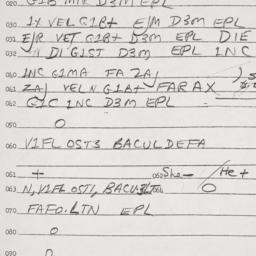 020 G1B MTR D3M EPL
030 1X VEL G1B+ E/M D3M EPL
031 E/R VET G1B+ D3M EPL DIE
032 DI G1ST D3M EPL 1NC
040 1NC G1MA FA ZAJ
041 ZAJ VELN G1B+ FARAX
042 G1C 1NC D3M EPL
050 O
060 V1FL OST3 BACULDEFA
061 + She- He+
063 N, V1FL OST1, BACU- LTN O
070 FAFO.LTN EPL
080 O
090 O